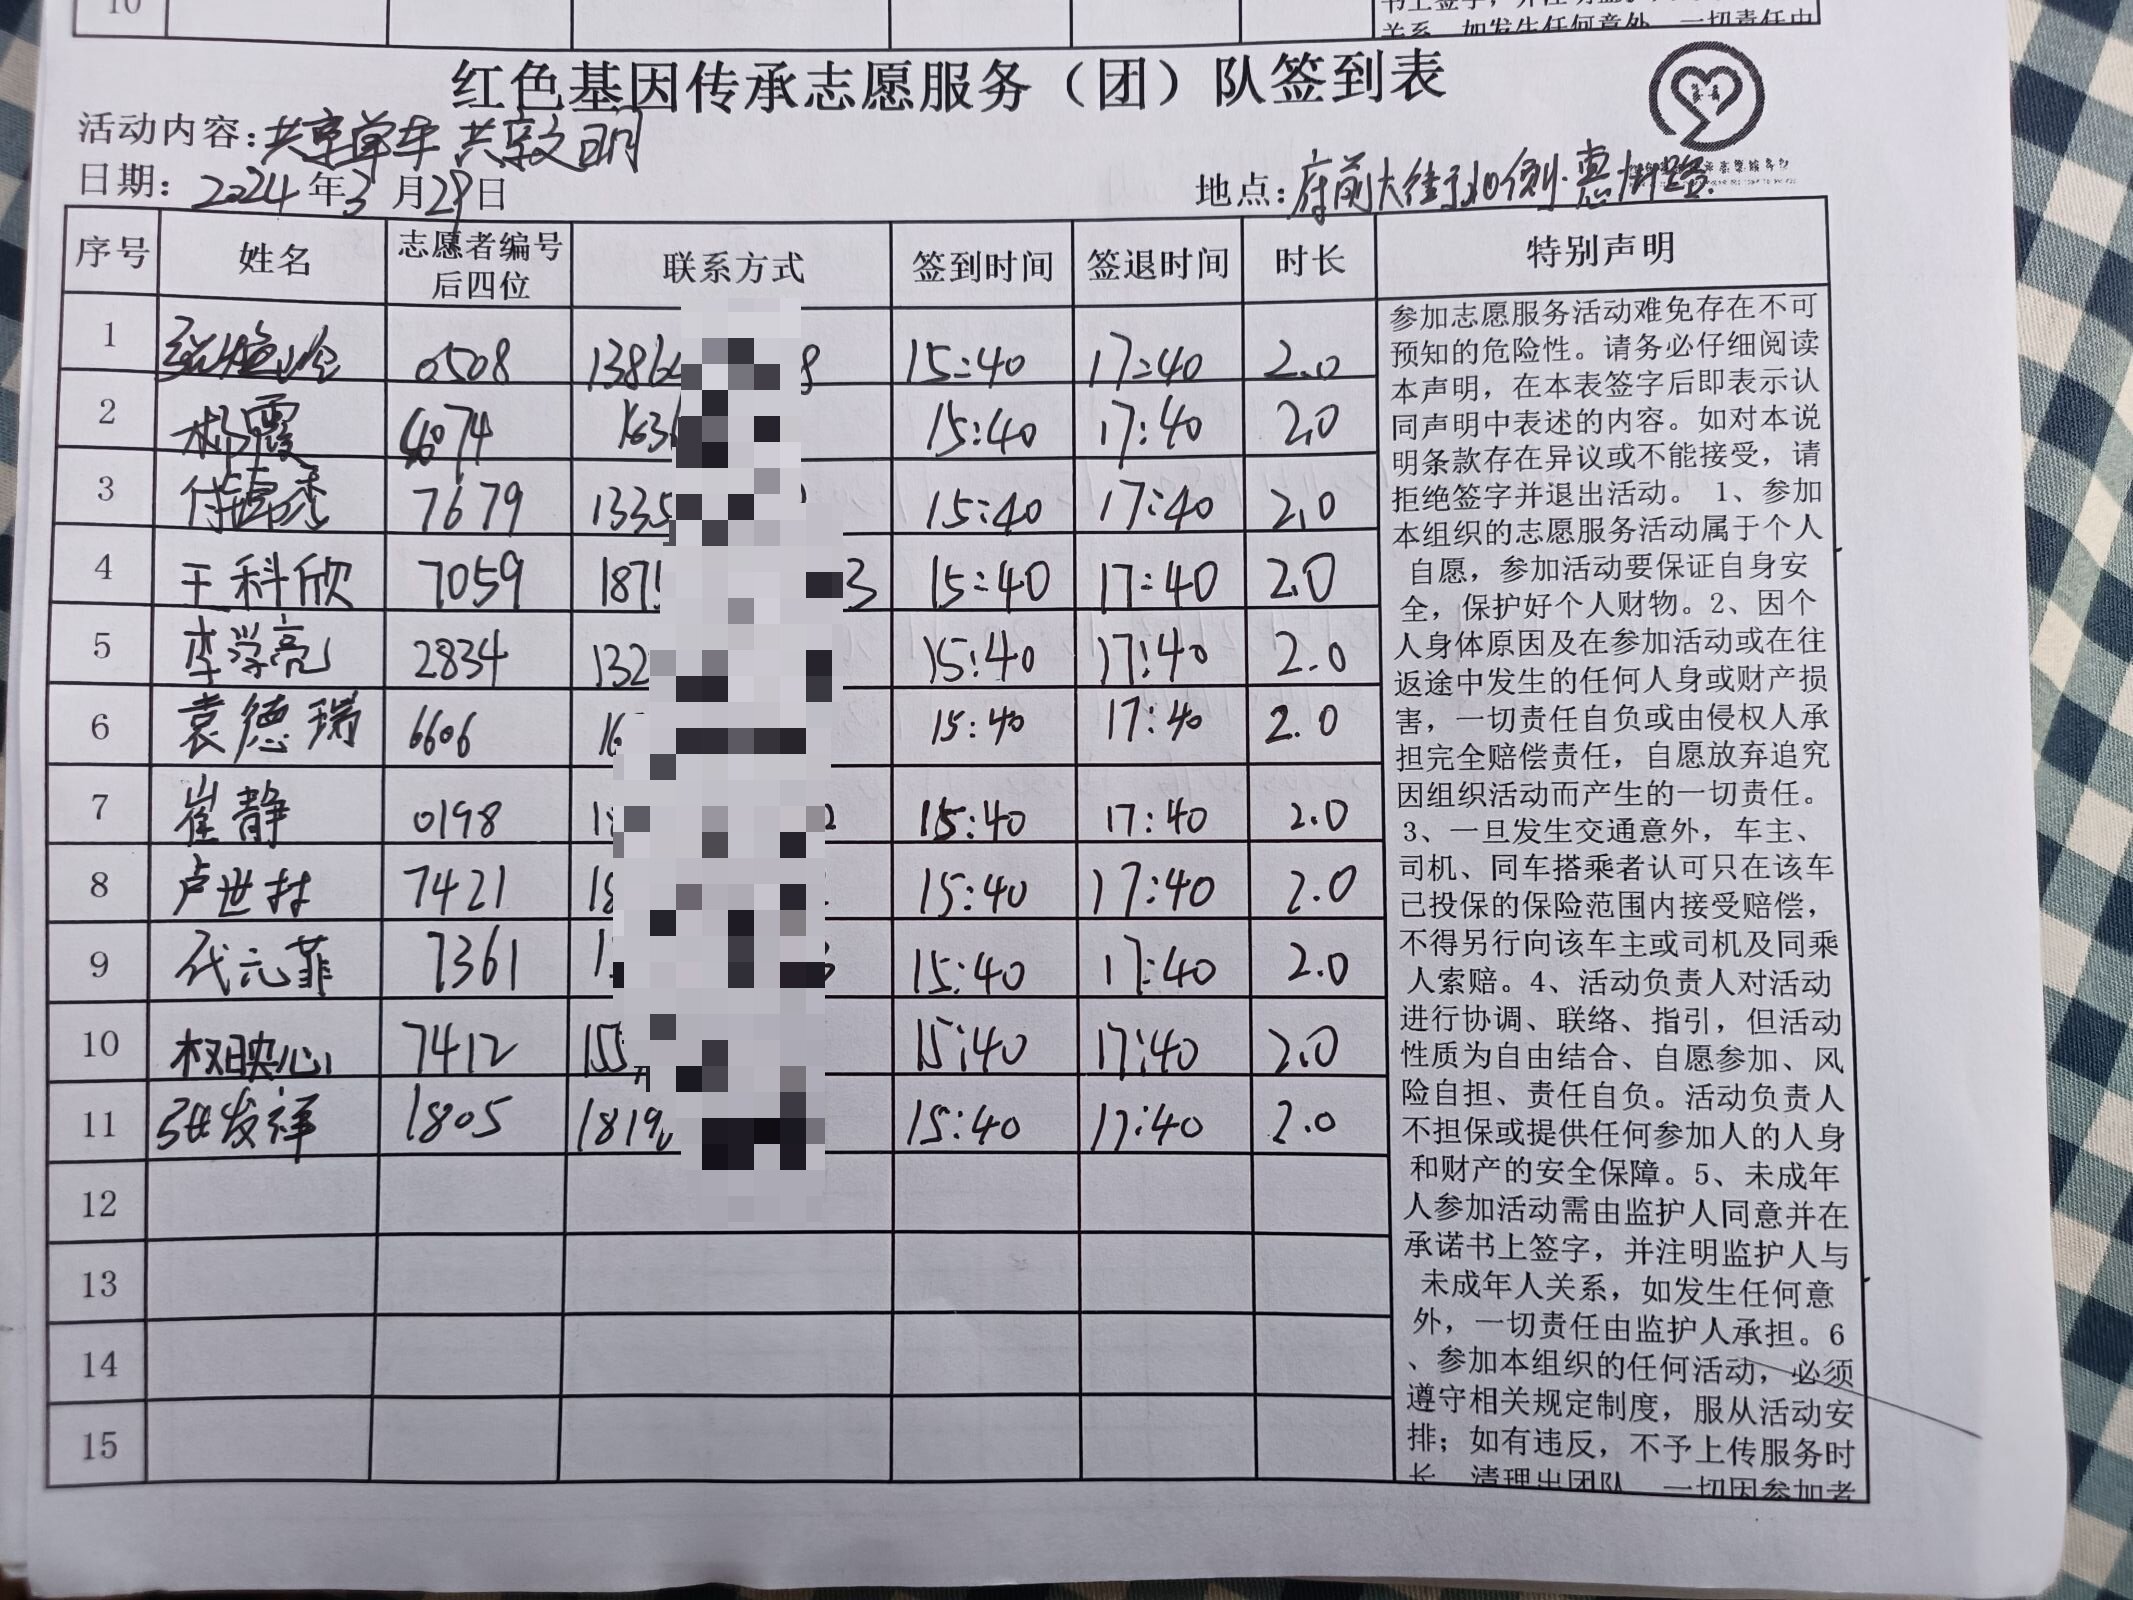 10
书上签字，并注明监护人与未成年人
关系，如发生任何意外，一切责任由
红色基因传承志愿服务（团）队签到表
活动内容：共享单车 共享文明
日期：2024年3月29日
地点：府前大街北侧·惠州路
序号 姓名 志愿者编号后四位 联系方式 签到时间 签退时间 时长 特别声明
1 0508 1386 8 15:40 17:40 2.0
2 杨霞 4074 163 15:40 17:40 2.0
3 付 秀 7679 1335 15:40 17:40 2.0
4 王科欣 7059 187 3 15:40 17:40 2.0
5 李学亮 2834 132 15:40 17:40 2.0
6 袁德瑞 6606 16 15:40 17:40 2.0
7 崔静 0198 1 2 15:40 17:40 2.0
8 卢世村 7421 18 15:40 17:40 2.0
9 代元菲 7361 1 3 15:40 17:40 2.0
10 权映心 7412 155 15:40 17:40 2.0
11 张发祥 1805 1819 15:40 17:40 2.0
12
13
14
15
参加志愿服务活动难免存在不可
预知的危险性。请务必仔细阅读
本声明，在本表签字后即表示认
同声明中表述的内容。如对本说
明条款存在异议或不能接受，请
拒绝签字并退出活动。 1、参加
本组织的志愿服务活动属于个人
自愿，参加活动要保证自身安
全，保护好个人财物。2、因个
人身体原因及在参加活动或在往
返途中发生的任何人身或财产损
害，一切责任自负或由侵权人承
担完全赔偿责任，自愿放弃追究
因组织活动而产生的一切责任。
3、一旦发生交通意外，车主、
司机、同车搭乘者认可只在该车
已投保的保险范围内接受赔偿，
不得另行向该车主或司机及同乘
人索赔。4、活动负责人对活动
进行协调、联络、指引，但活动
性质为自由结合、自愿参加、风
险自担、责任自负。活动负责人
不担保或提供任何参加人的人身
和财产的安全保障。5、未成年
人参加活动需由监护人同意并在
承诺书上签字，并注明监护人与
未成年人关系，如发生任何意
外，一切责任由监护人承担。6
、参加本组织的任何活动，必须
遵守相关规定制度，服从活动安
排；如有违反，不予上传服务时
长，清理出团队，一切因参加者